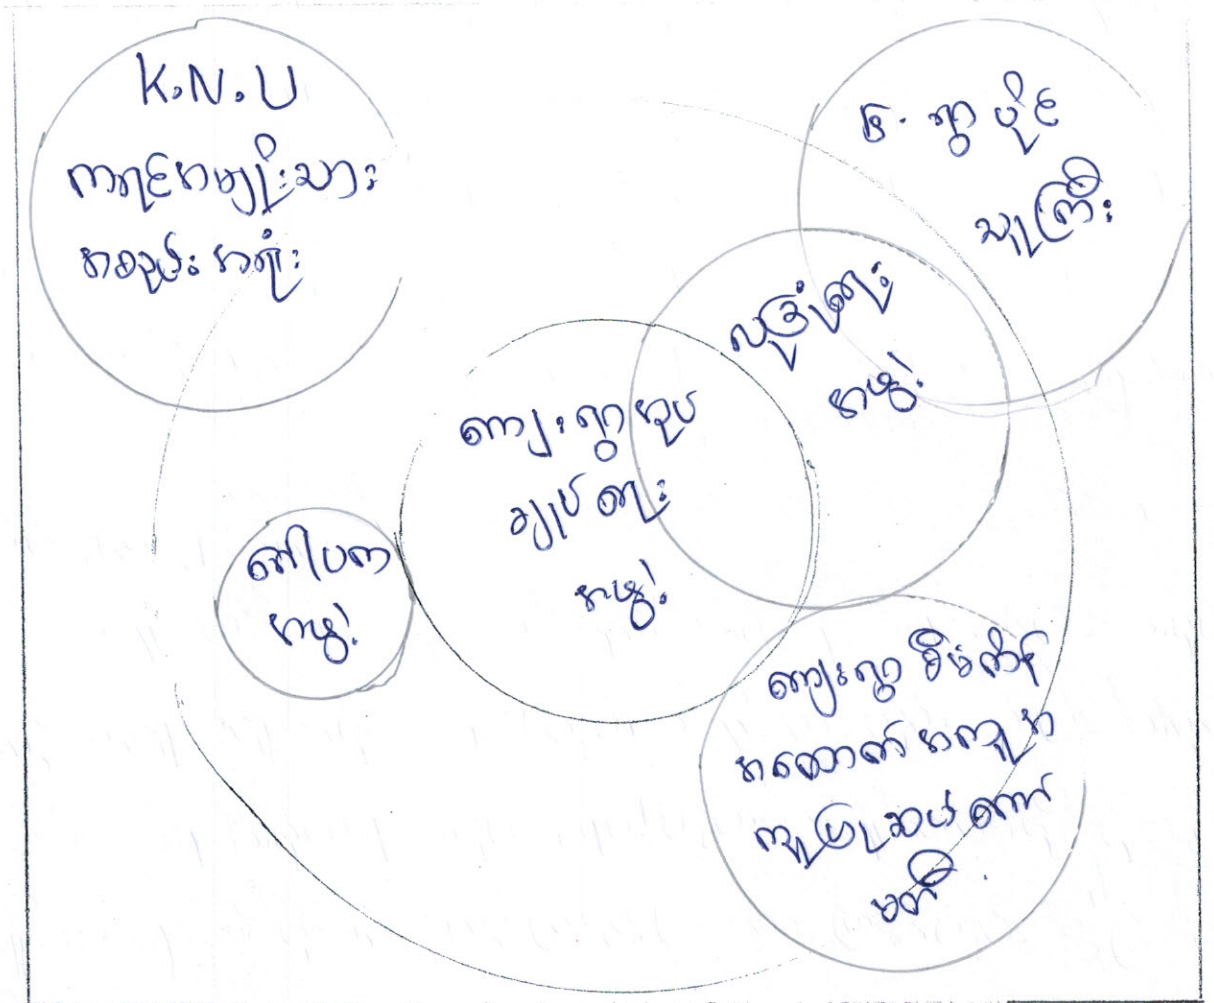 K.N.U
ကရင်အမျိုးသား
အစည်းအရုံး
ရွာပိုင်
သူကြီး
လူမှုရေး
အဖွဲ့
ကျေးရွာအုပ်
ချုပ်ရေး
အဖွဲ့
ဂေါပက
အဖွဲ့
ကျေးရွာစီမံကိန်း
အထောက်အကူအ
ကူပြုဆပ်ကော်
မတီ